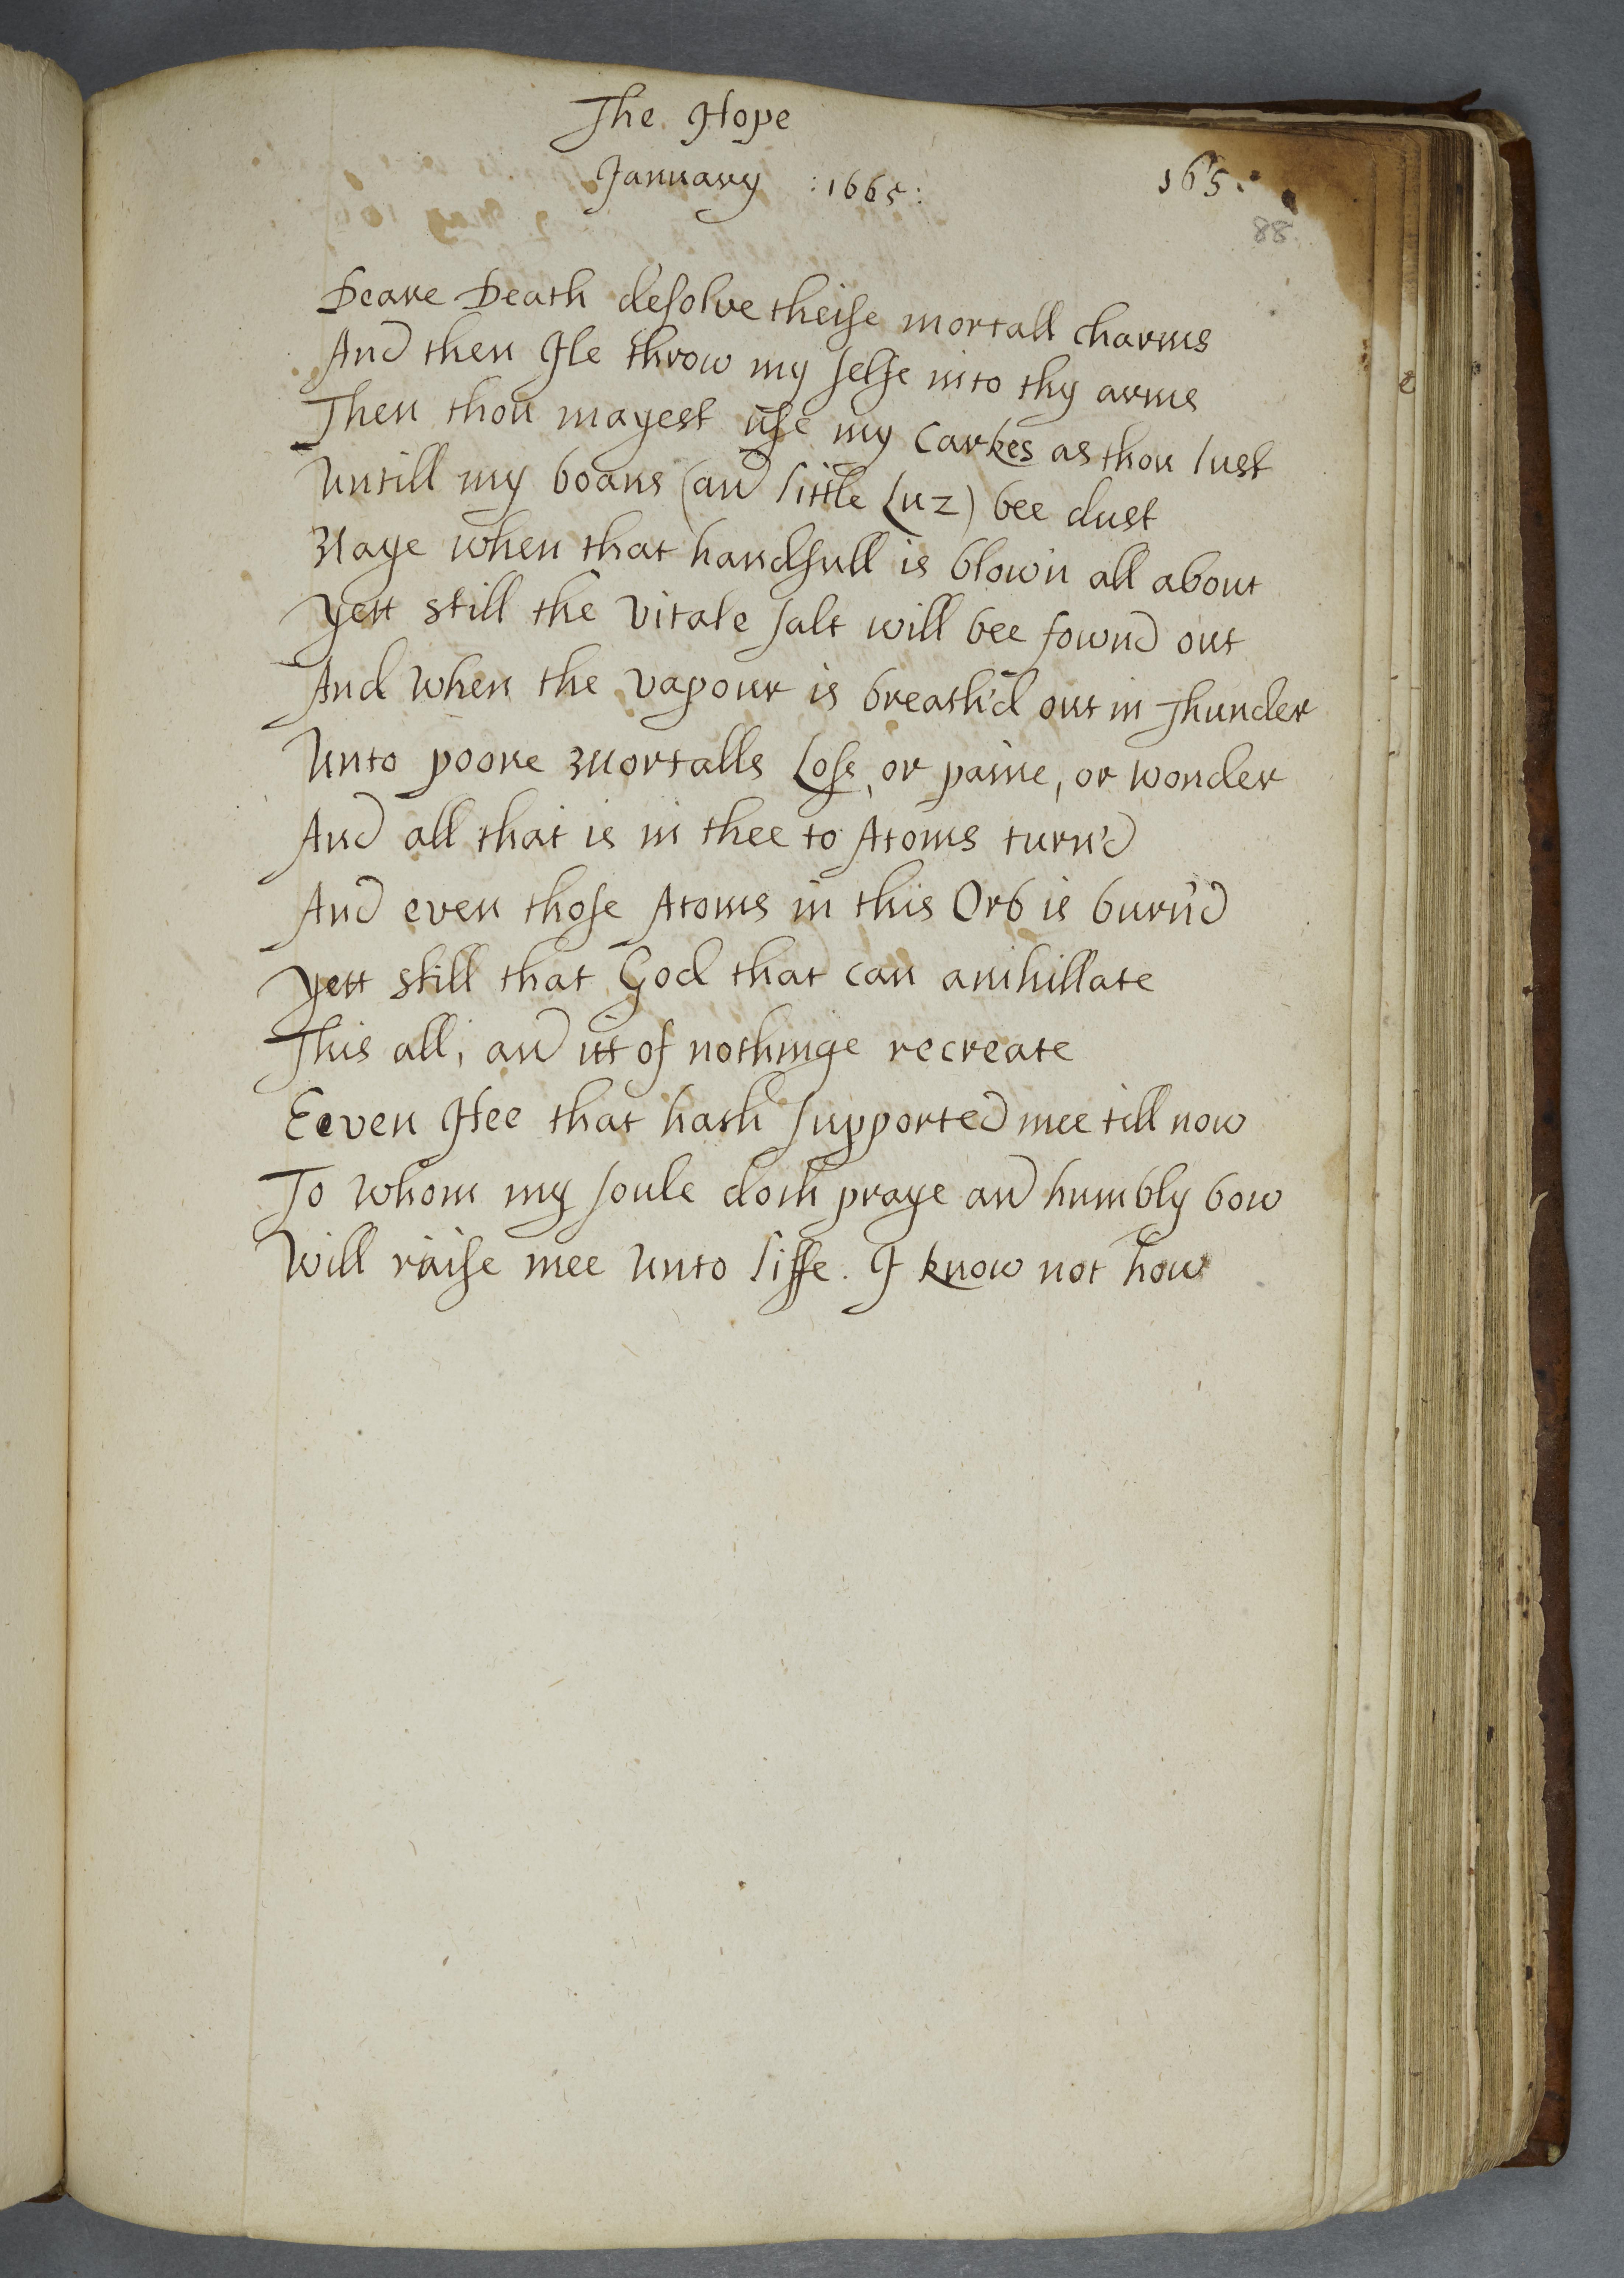 The Hope
January :1665: 165.
88
Deare Death desolve theise mortall charms
And then Ile throw my selfe into thy arms
Then thou mayest use my Carkes as thou lust
Untill my boans (and little Luz) bee dust
Naye when that handfull is blown all about
Yett still the Vitale salt will bee fownd out
And when the vapour is breath'd out in Thunder
Unto poore Mortalls Lose, or paine, or wonder
And all that is in thee to Atoms turn'd
And even those Atoms in this Orb is burn'd
Yett still that God that can anihillate
This all, and itt of nothinge recreate
Eeven Hee that hath supported mee till now
To whom my soule doth praye and humbly bow
Will raise mee unto liffe. I know not how